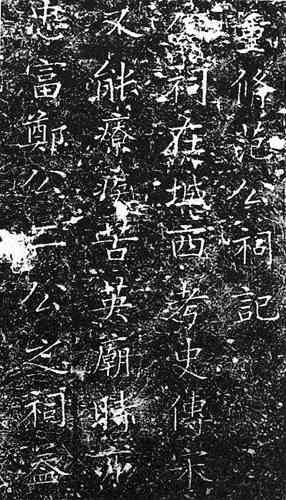 重修范公祠記
祠在城西考史傳宋
又能療疾苦英廟時所
忠富鄭公二公之祠益